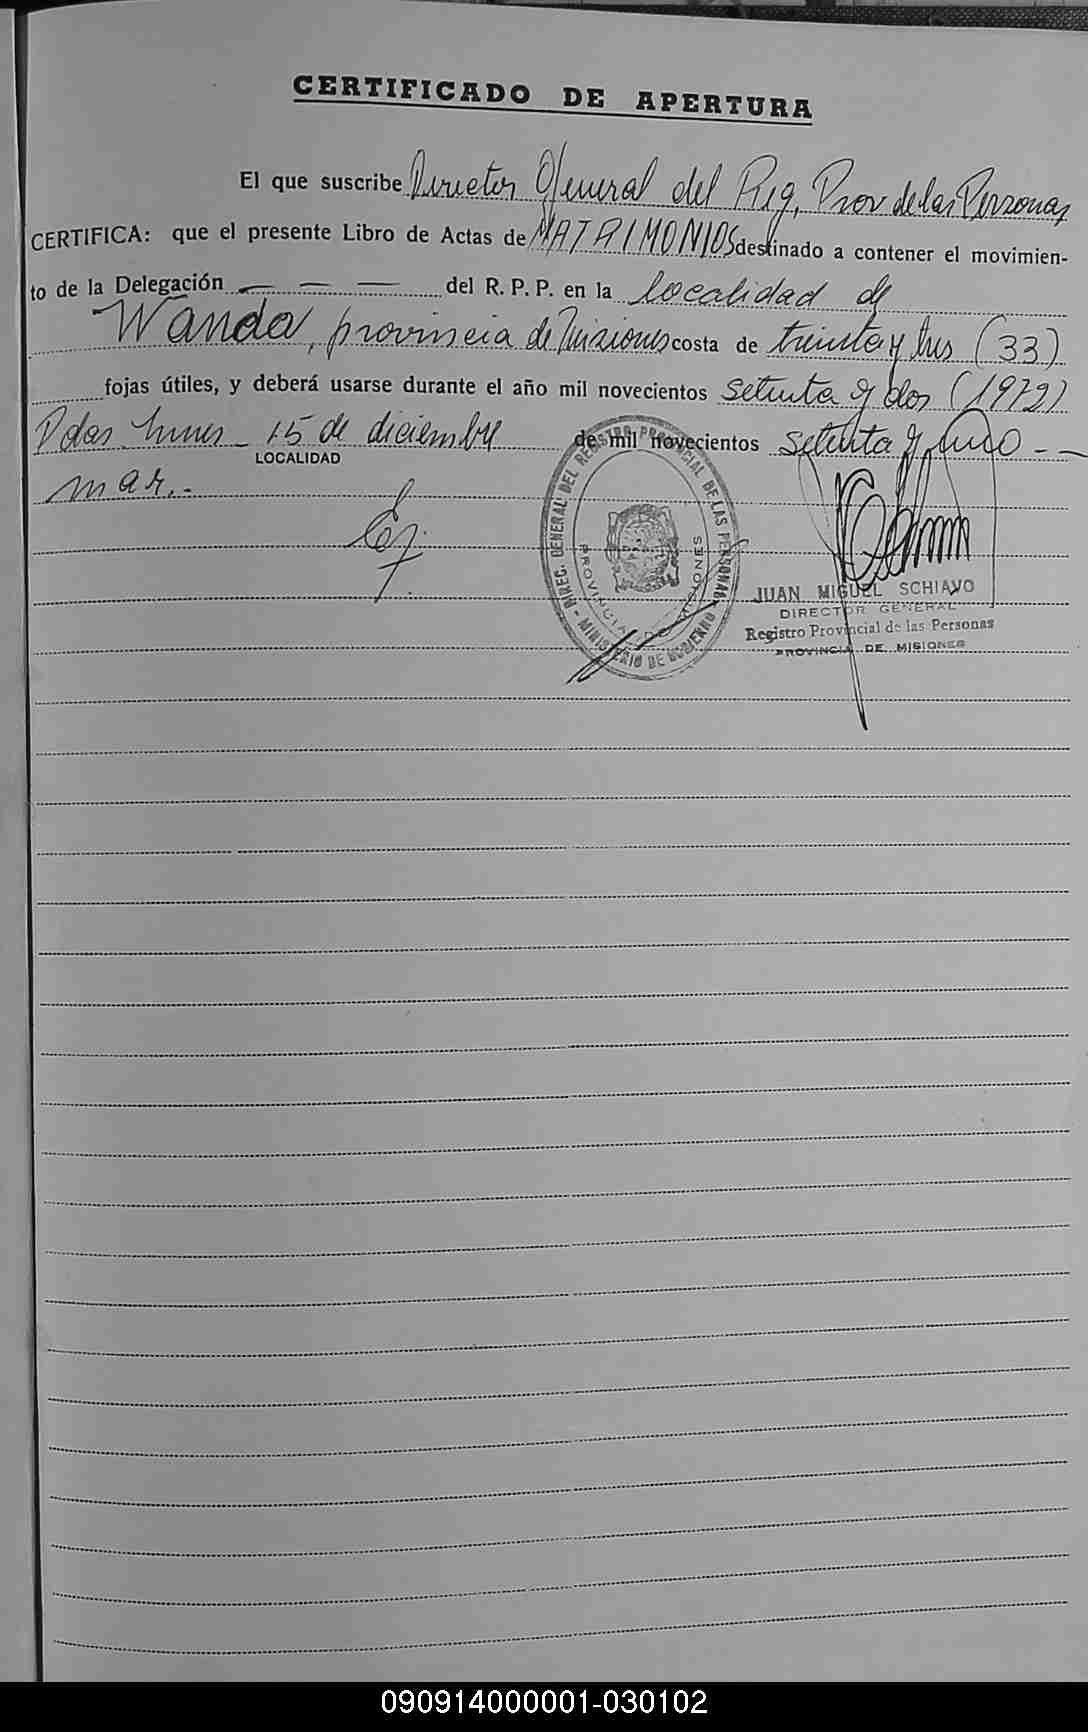 CERTIFICADO DE APERTURA
El que suscribe Director General del Reg. Prov de las Personas
CERTIFICA: que el presente Libro de Actas de MATRIMONIOS destinado a contener el movimien-
to de la Delegación — — — del R. P. P. en la localidad de
Wanda, provincia de Misiones costa de treinta y tres (33)
fojas útiles, y deberá usarse durante el año mil novecientos setenta y dos (1972)
Pdas 15 de diciembre de mil novecientos setenta y uno - -
LOCALIDAD
mar.-
DIREC. GENERAL DEL REGISTRO PROVINCIAL DE LAS PERSONAS
PROVINCIA DE MISIONES
- MINISTERIO DE GOBIERNO -
JUAN MIGUEL SCHIAVO
DIRECTOR GENERAL
Registro Provincial de las Personas
PROVINCIA DE MISIONES
090914000001-030102